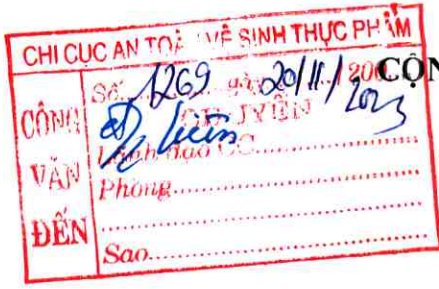 CHI CỤC AN TOÀ VỆ SINH THỰC PHẨM
CÔNG VĂN ĐẾN
Số 1269 20/11/2023
CỘN
Lãnh đạo CC
Phòng
Sao